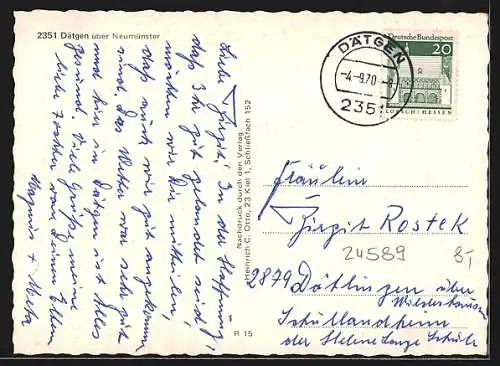 2351 Dätgen über Neumünster
Liebe Birgit. In der Hoffnung,
daß Ihr gut gelandet seid,
möchten wir Dir mitteilen,
daß auch wir gut angekommen
sind. Das Wetter war sehr gut
und hier in Dätgen ist Alles
gesund. Viele Grüße, meine
liebe Tochter von Deinen Eltern
Magnus + Meta
Nachdruck durch den Verlag
Heinrich C. Otto, 23 Kiel 1, Schließfach 152
R 15
DÄTGEN
-4.-9.70
2351
Deutsche Bundespost
20
LORSCH/HESSEN
Fräulein
Birgit Rostek
24589
8,-
2879 Dötlingen über
Wildeshausen
Schullandheim
der Helene Lange Schule